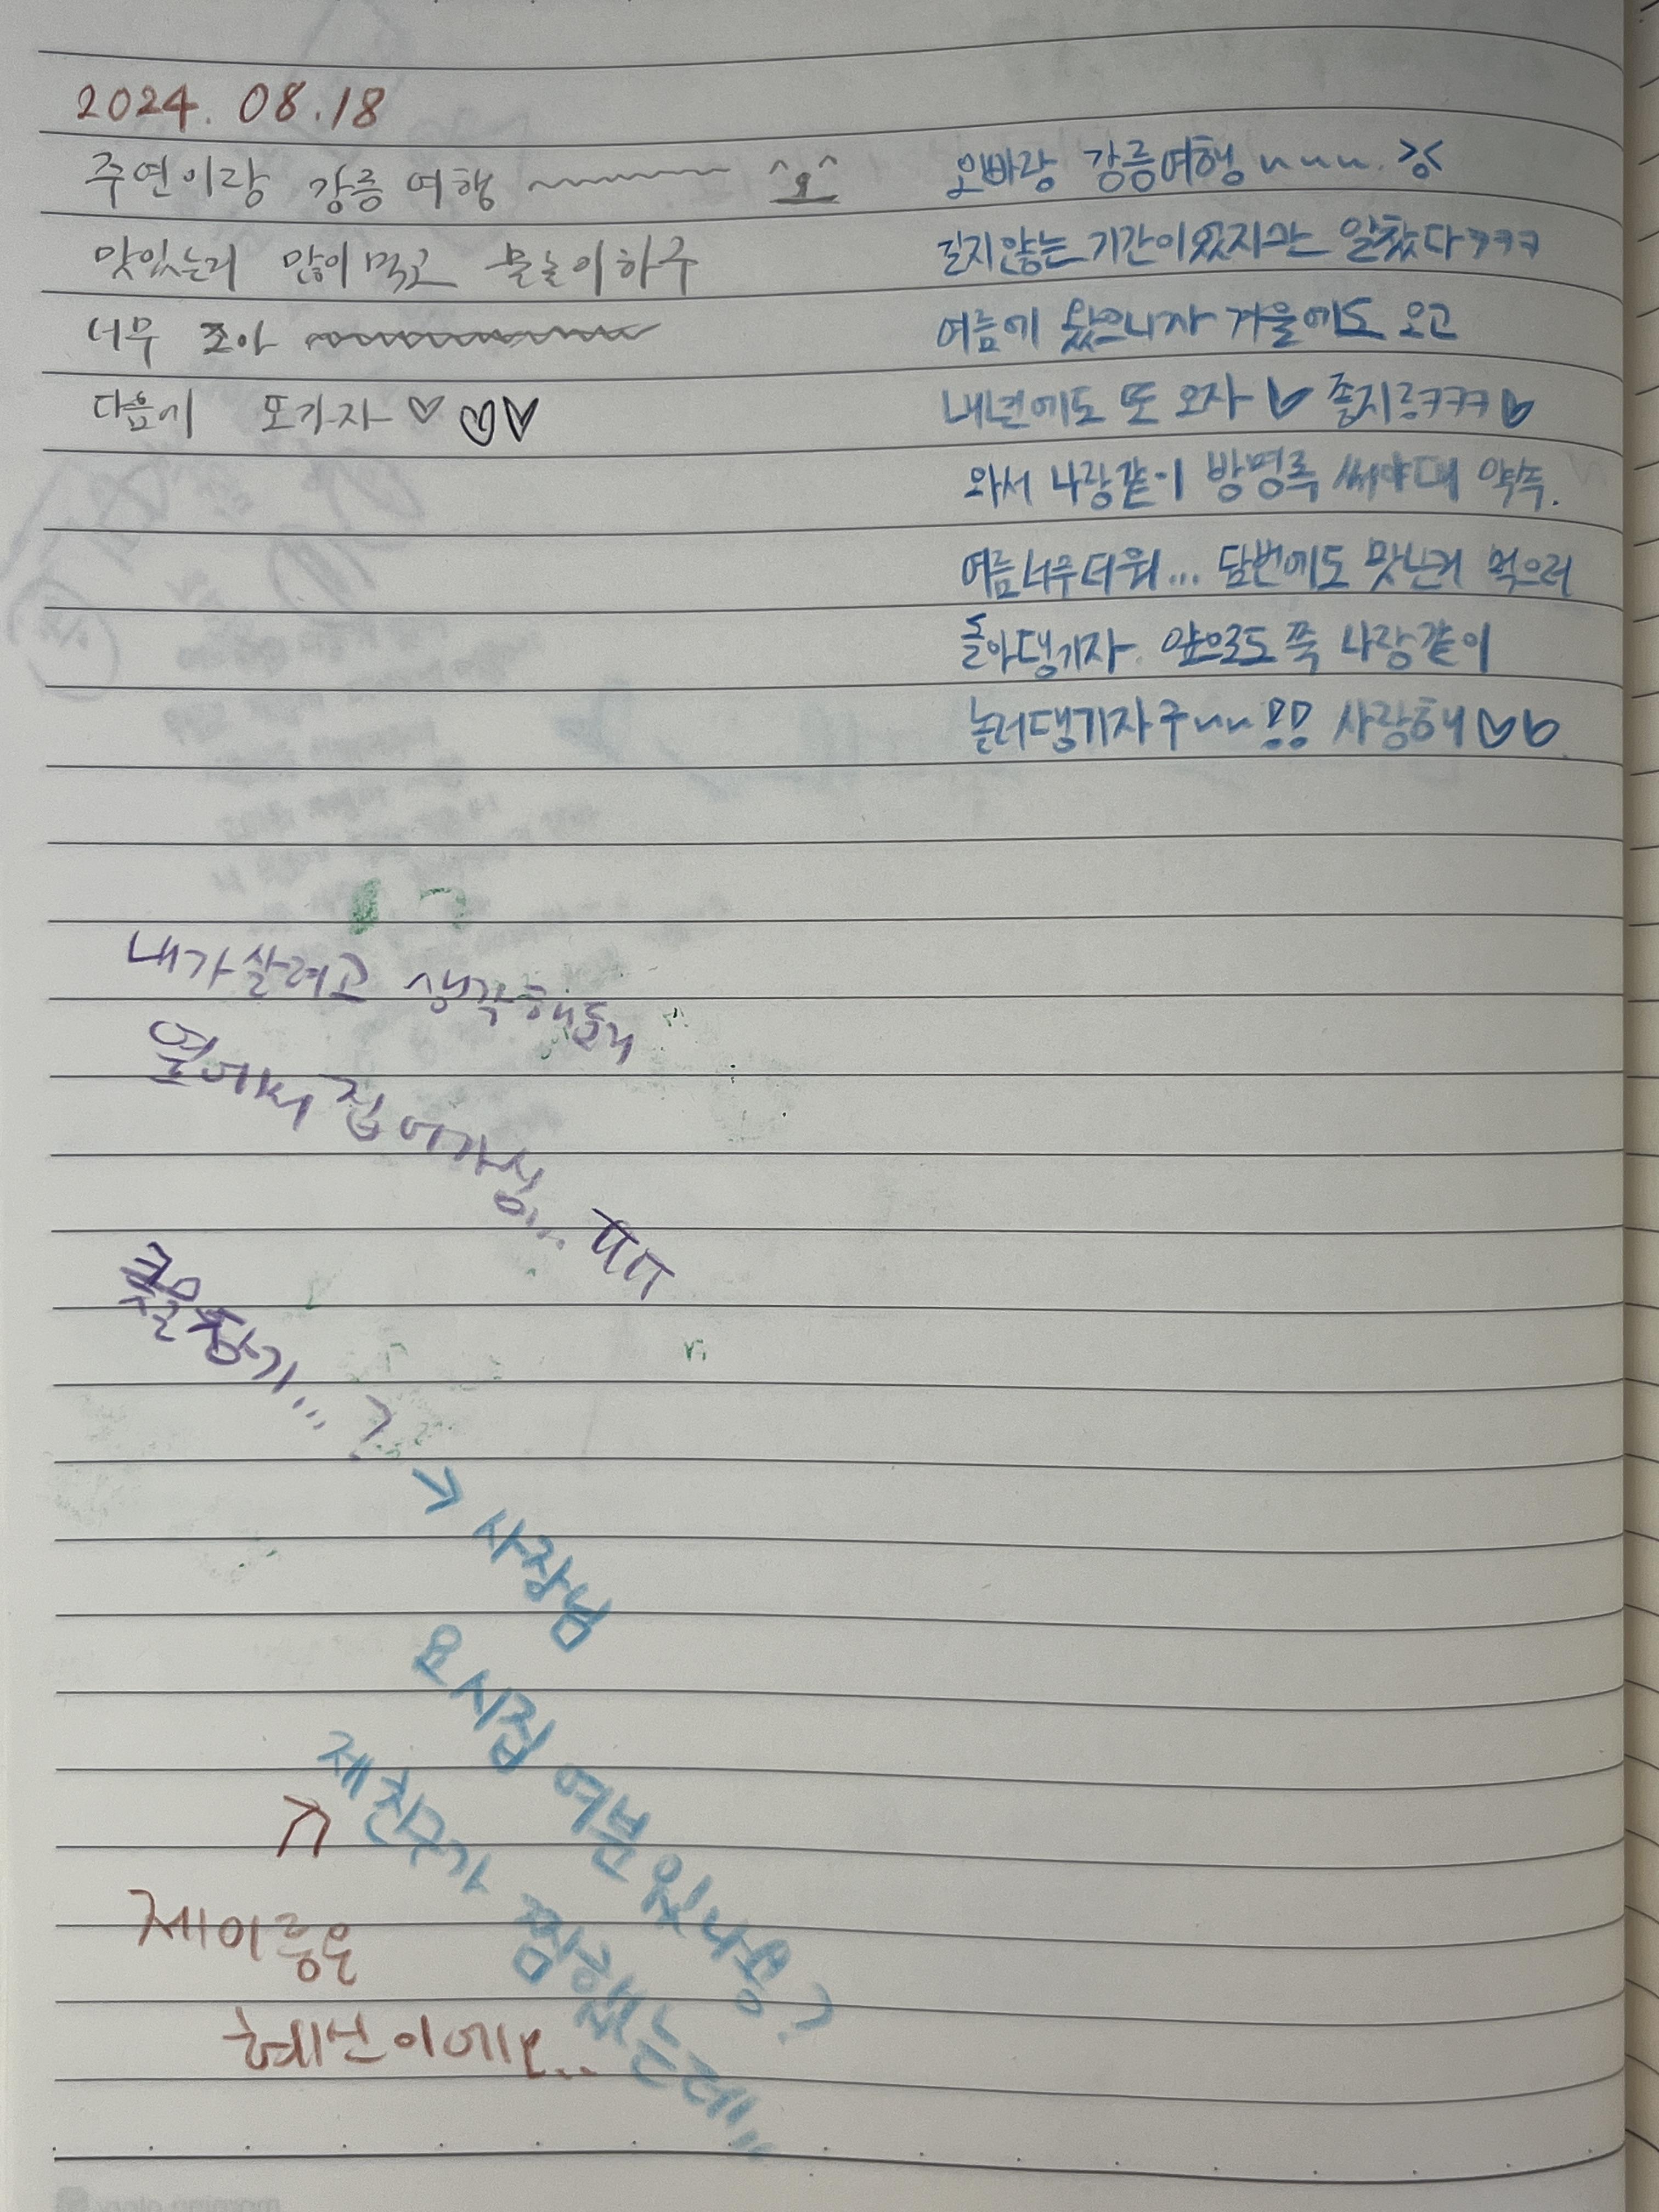 2024. 08.18
주연이랑 강릉 여행 ~~~~~ ^오^
맛있는거 많이 먹고 물놀이하구
너무 조아 ~~~~~
다음에 또가자 ♡♡♡
오빠랑 강릉여행 ~~~ >.<
길지않는 기간이였지만 알찼다ㅋㅋㅋ
여름에 왔으니까 겨울에도 오고
내년에도 또 오자♡ 좋지ㄹㅋㅋㅋ♡
와서 나랑같이 방명록 써야대 약속.
여름너무더워... 담번에도 맛난거 먹으러
돌아댕기자. 앞으로도 쭉 나랑같이
놀러댕기자구~~!! 사랑해♡♡
내가살려고 생각해둔거
옆에서 집어가심... ㅠㅠ
→ 사장님
요시집 여분있나용?
제친구가 찜했는데"
제이름은
혜선이에요..